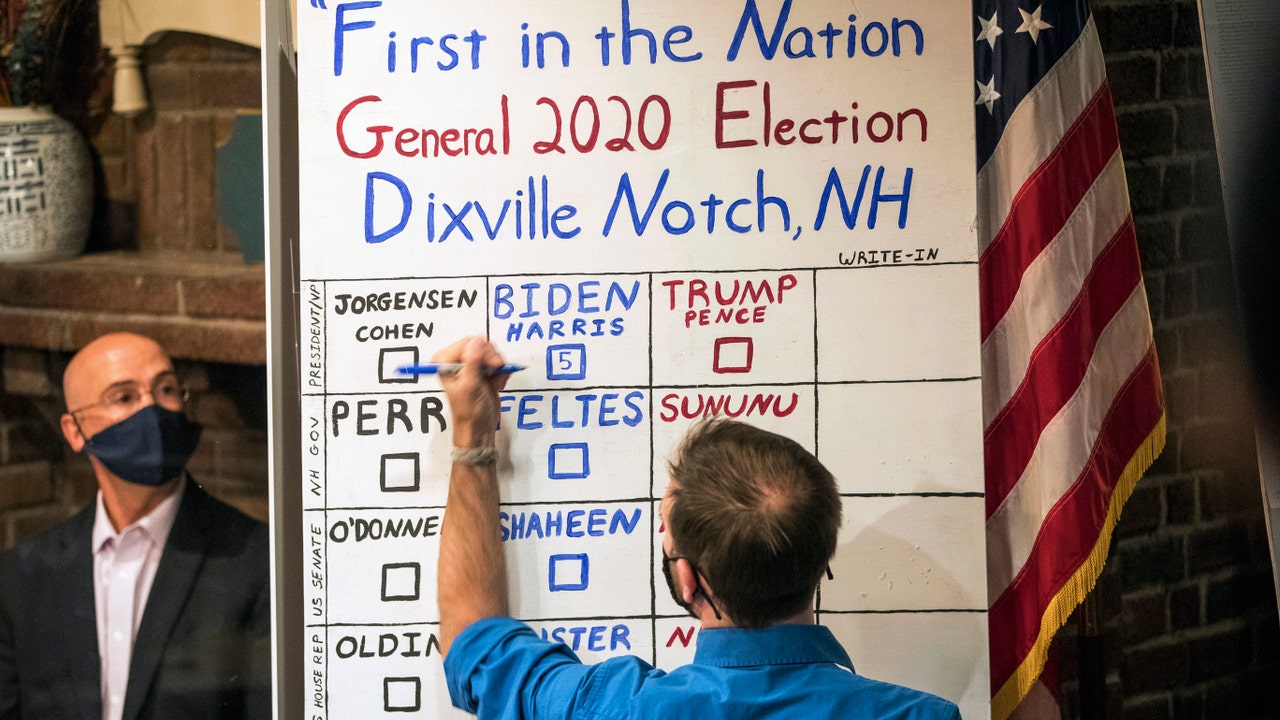 "First in the Nation
General 2020 Election
Dixville Notch, NH
WRITE-IN
PRESIDENT/VP
JORGENSEN
COHEN
BIDEN
HARRIS
5
TRUMP
PENCE
NH GOV
PERR
FELTES
SUNUNU
US SENATE
O'DONNE
SHAHEEN
HOUSE REP
OLDIN
STER